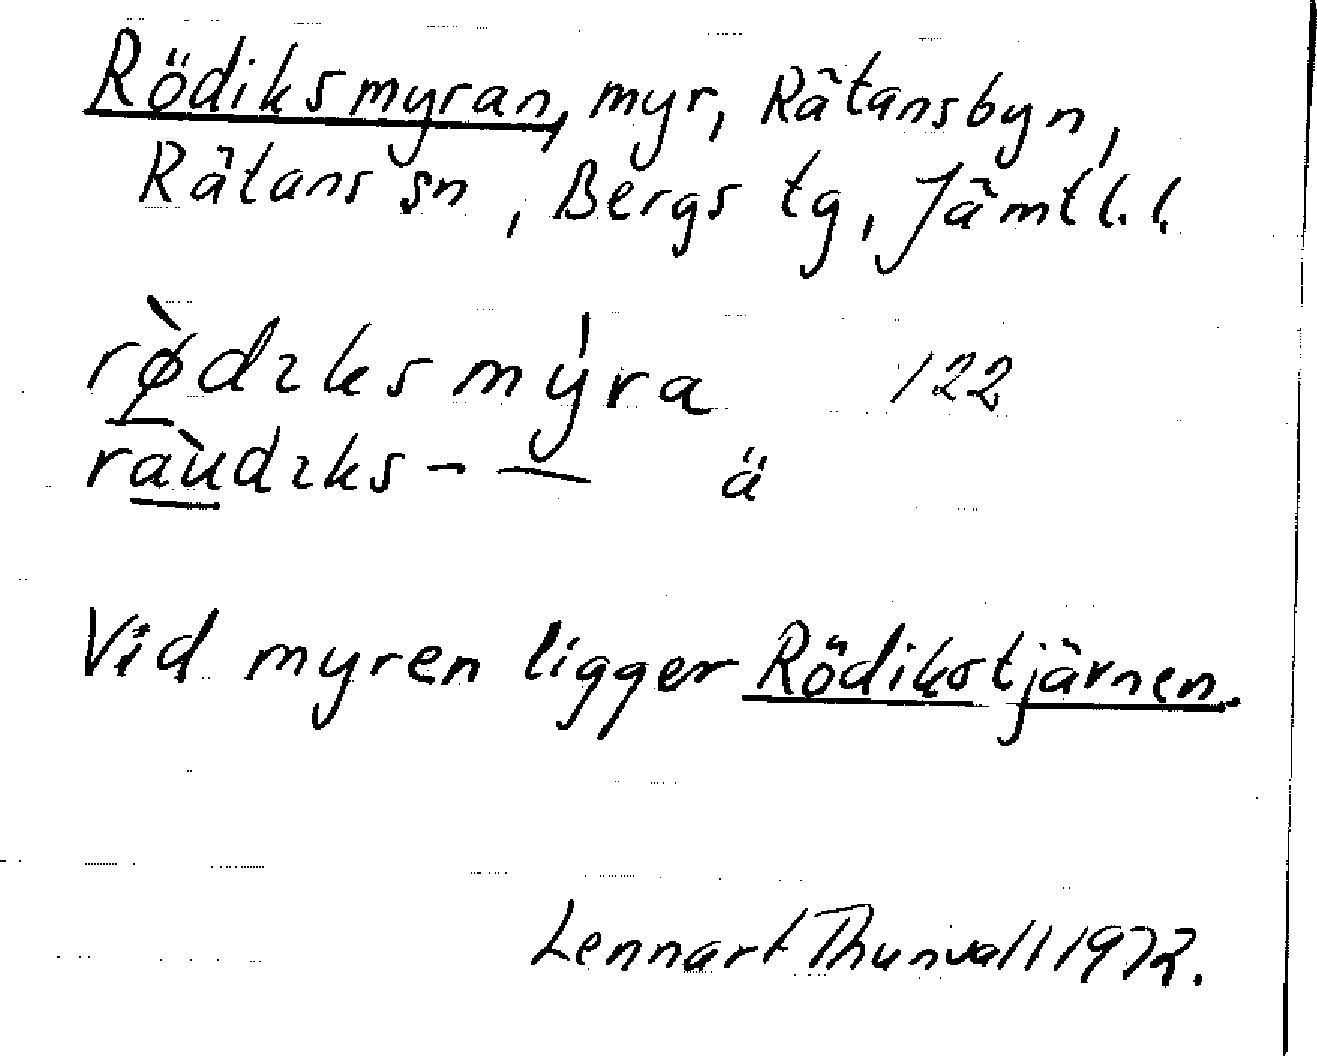 Rödiksmyran, myr, Rätansbyn,
Rätans sn, Bergs tg, Jämtl. l.
rø̀dɩksmy̍ra 122
ràudɩks- — ä
Vid myren ligger Rödikstjärnen.
Lennart Thunvall 1972.